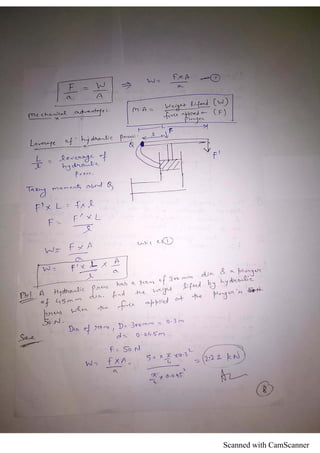 F/a = W/A ⇒ W = F×A/a —①
Mechanical advantage: M.A = Weight lifted (W) / force applied on Plunger (F)
Leverage of hydraulic press:
L/l = leverage of hydraulic press.
Q
F'
Taking moments about Q,
F' × L = F × l
F = F' × L / l
W = F × A / a
W = F' × L / l × A / a
A Hydraulic Press has a ram of 300 mm dia & a plunger
of 45 mm dia. find the weight lifted by hydraulic
press when the force applied at the plunger is
50 N.
Dia of ram, D = 300mm = 0.3m
d = 0.045m
F = 50 N
W = F×A / a = = 2.22 kN
8
Scanned with CamScanner